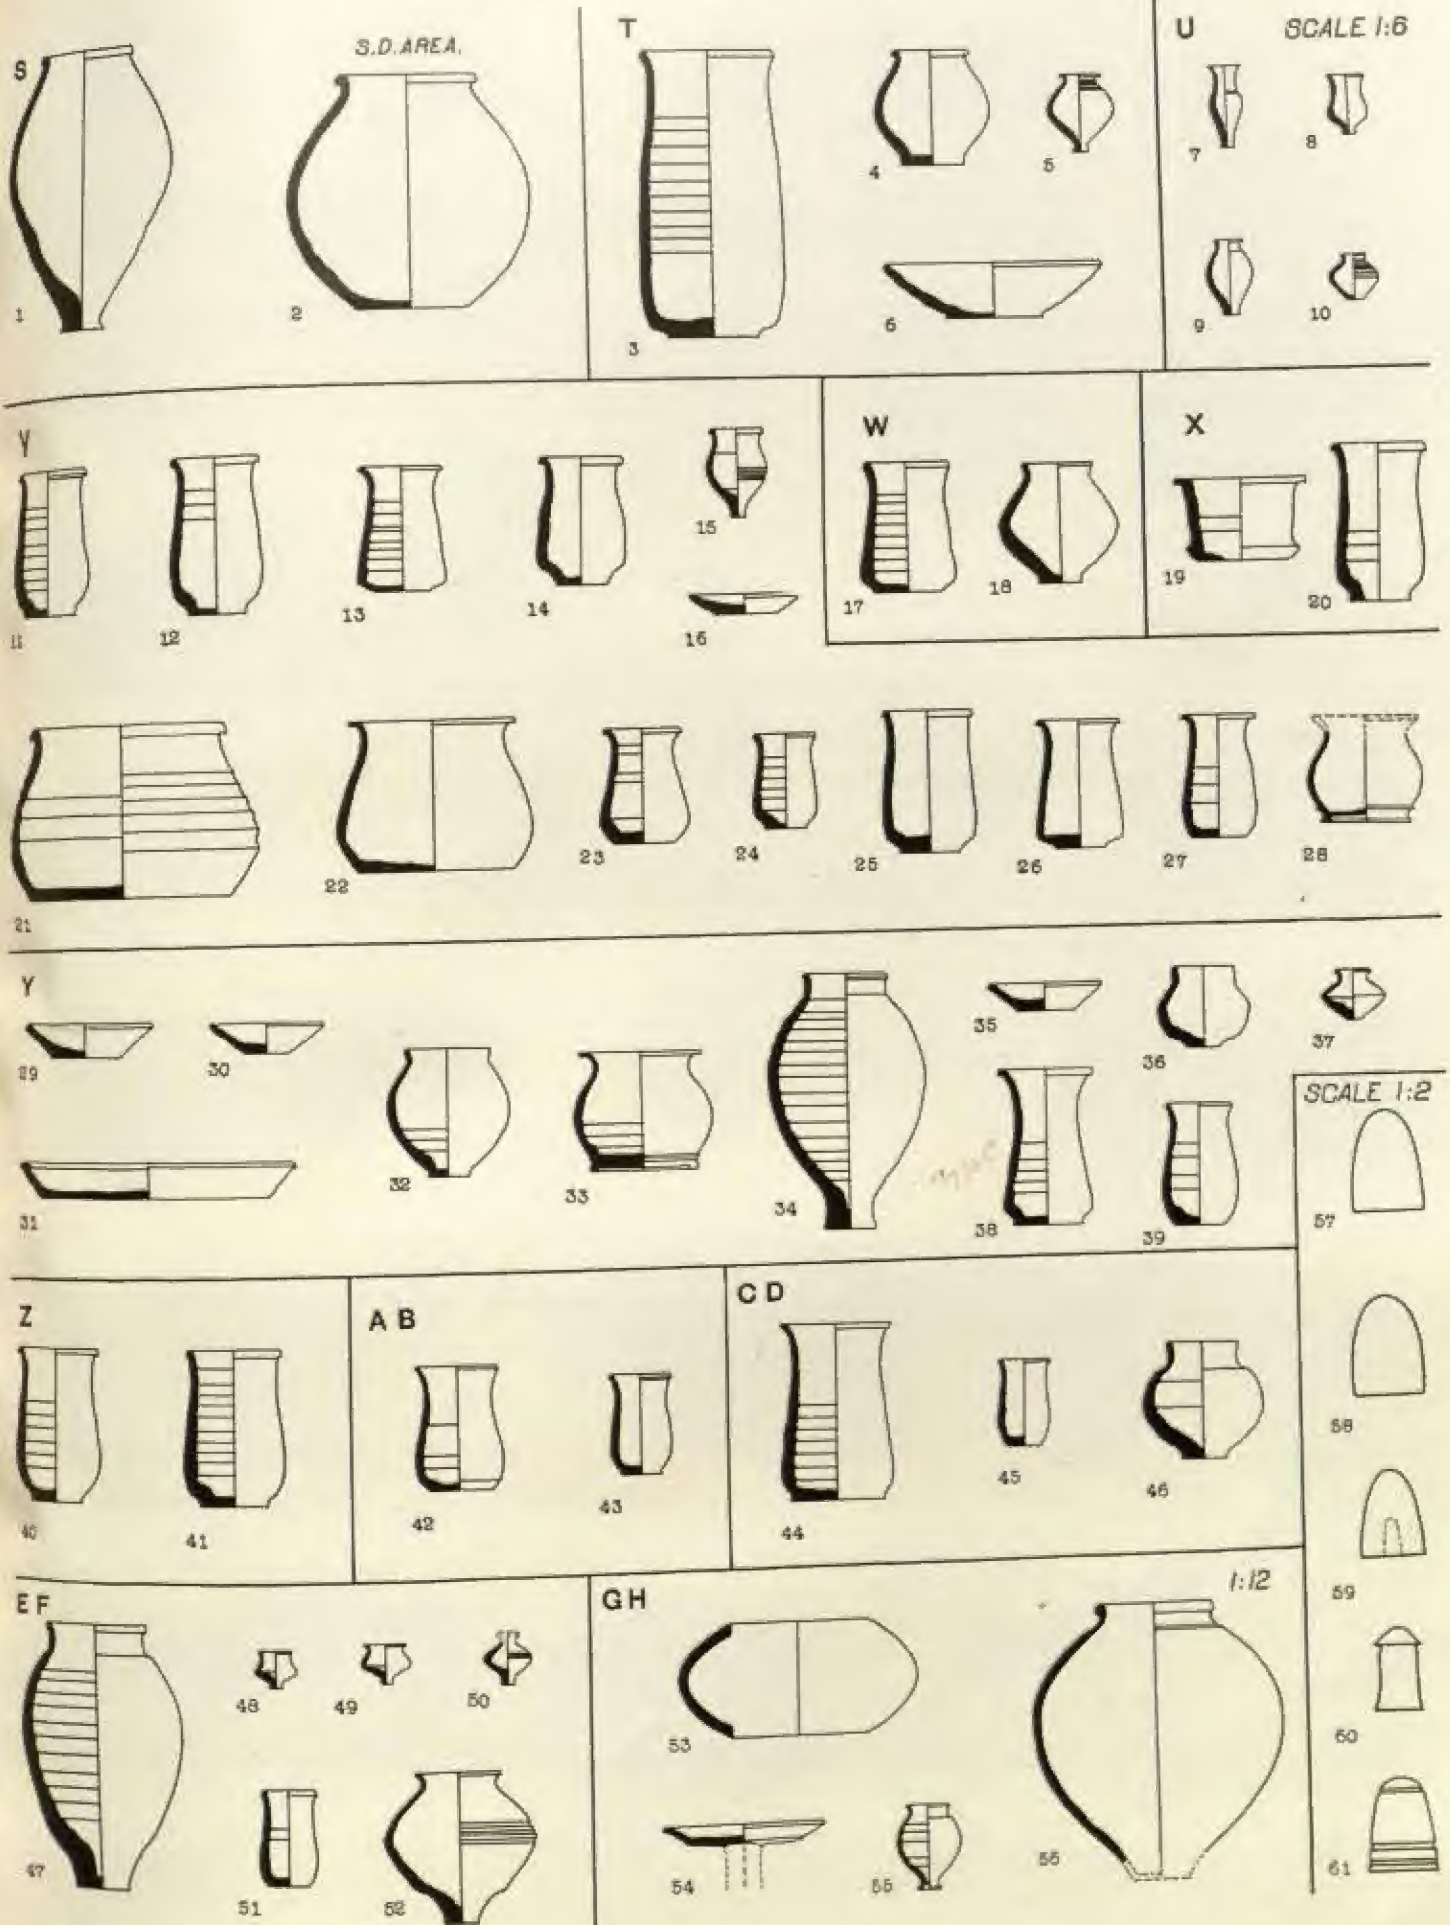 S
S.D. AREA.
1
2
T
3
4
5
6
U
SCALE 1:6
7
8
9
10
V
11
12
13
14
15
16
W
17
18
X
19
20
21
22
23
24
25
26
27
28
Y
29
30
31
32
33
34
35
36
37
38
39
SCALE 1:2
57
58
59
60
61
Z
40
41
A B
42
43
C D
44
45
46
E F
47
48
49
50
51
52
G H
1:12
53
54
55
56